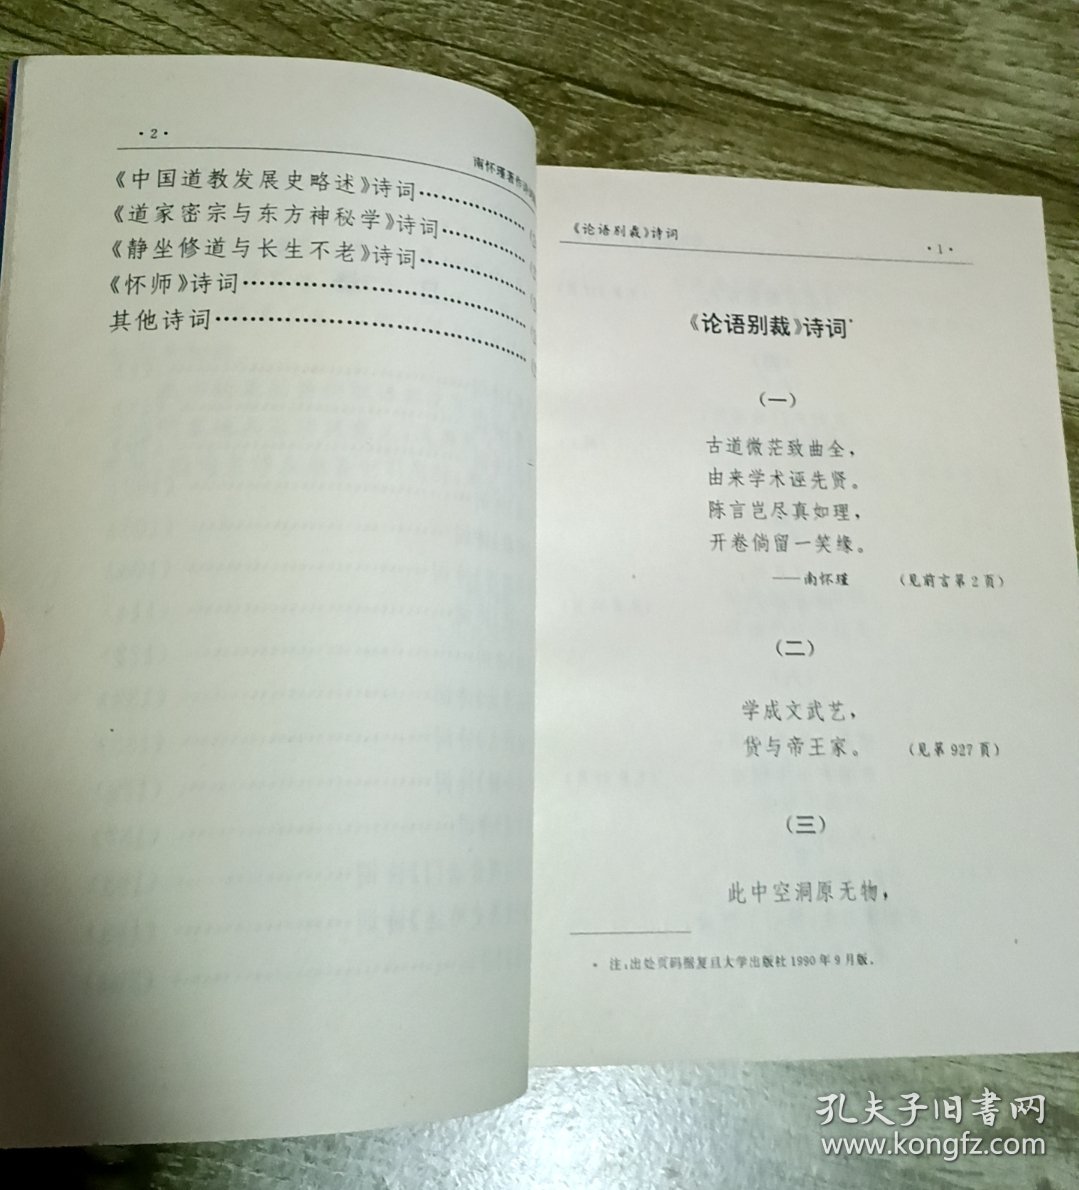 ·2·
南怀瑾著作诗词
《中国道教发展史略述》诗词……………
《道家密宗与东方神秘学》诗词…………
《静坐修道与长生不老》诗词……………
《怀师》诗词………………………………
其他诗词……………………………………
《论语别裁》诗词
·1·
《论语别裁》诗词*
(一)
古道微茫致曲全，
由来学术诬先贤。
陈言岂尽真如理，
开卷倘留一笑缘。
——南怀瑾 (见前言第2页)
(二)
学成文武艺，
货与帝王家。 (见第927页)
(三)
此中空洞原无物，
* 注：出处页码据复旦大学出版社1990年9月版．
孔夫子旧書网
www.kongfz.com